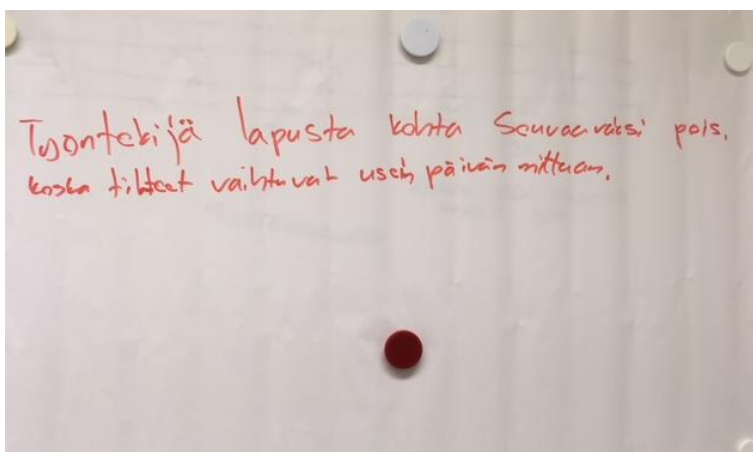 Työntekijä lapusta kohta Seuraavaksi pois,
koska tilteet vaihtuvat usein päivän mittaan.